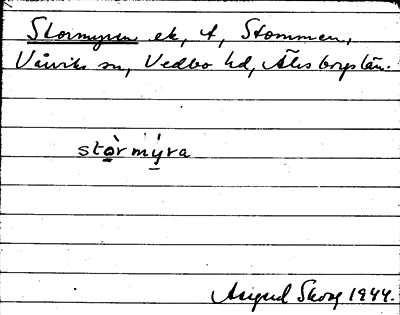 Stormyren ek, t, Stommen,
Vårviks sn, Vedbo hd, Älvsborgs län.
stò̱r mý̱ra
Astrid Skog 1944.